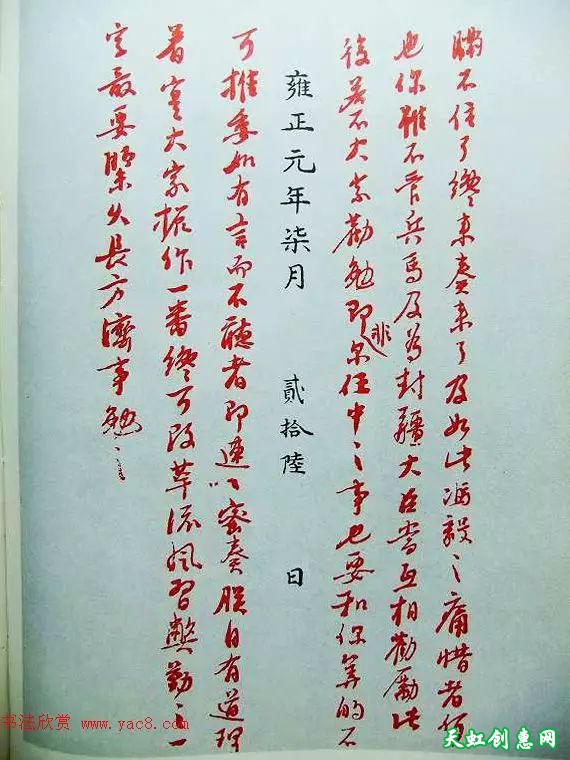 瞞不住了纔来奏来了及如此馮毅之庸者何
也你雖不管兵馬及為封疆大臣當互相勸勵此
後若不大家勸勉即非尔任中之事也要和你算的不
雍正元年柒月 貳拾陸 日
可推委如有言而不聽者即速以密奏朕自有道理
着實大家振作一番纔可改革流風習弊勤之一
字最要緊久長方濟事勉之
书法欣赏 www.yac8.com
天虹创惠网